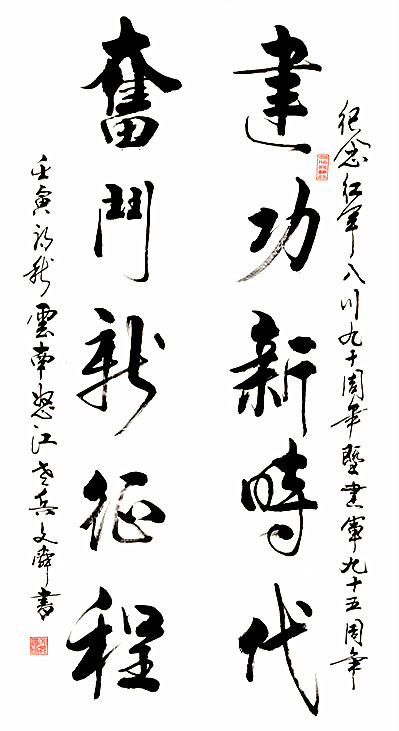 紀念紅軍入川九十周年暨建軍九十五周年
建功新時代
奮鬥新征程
壬寅初秋雲南怒江老兵文舜書